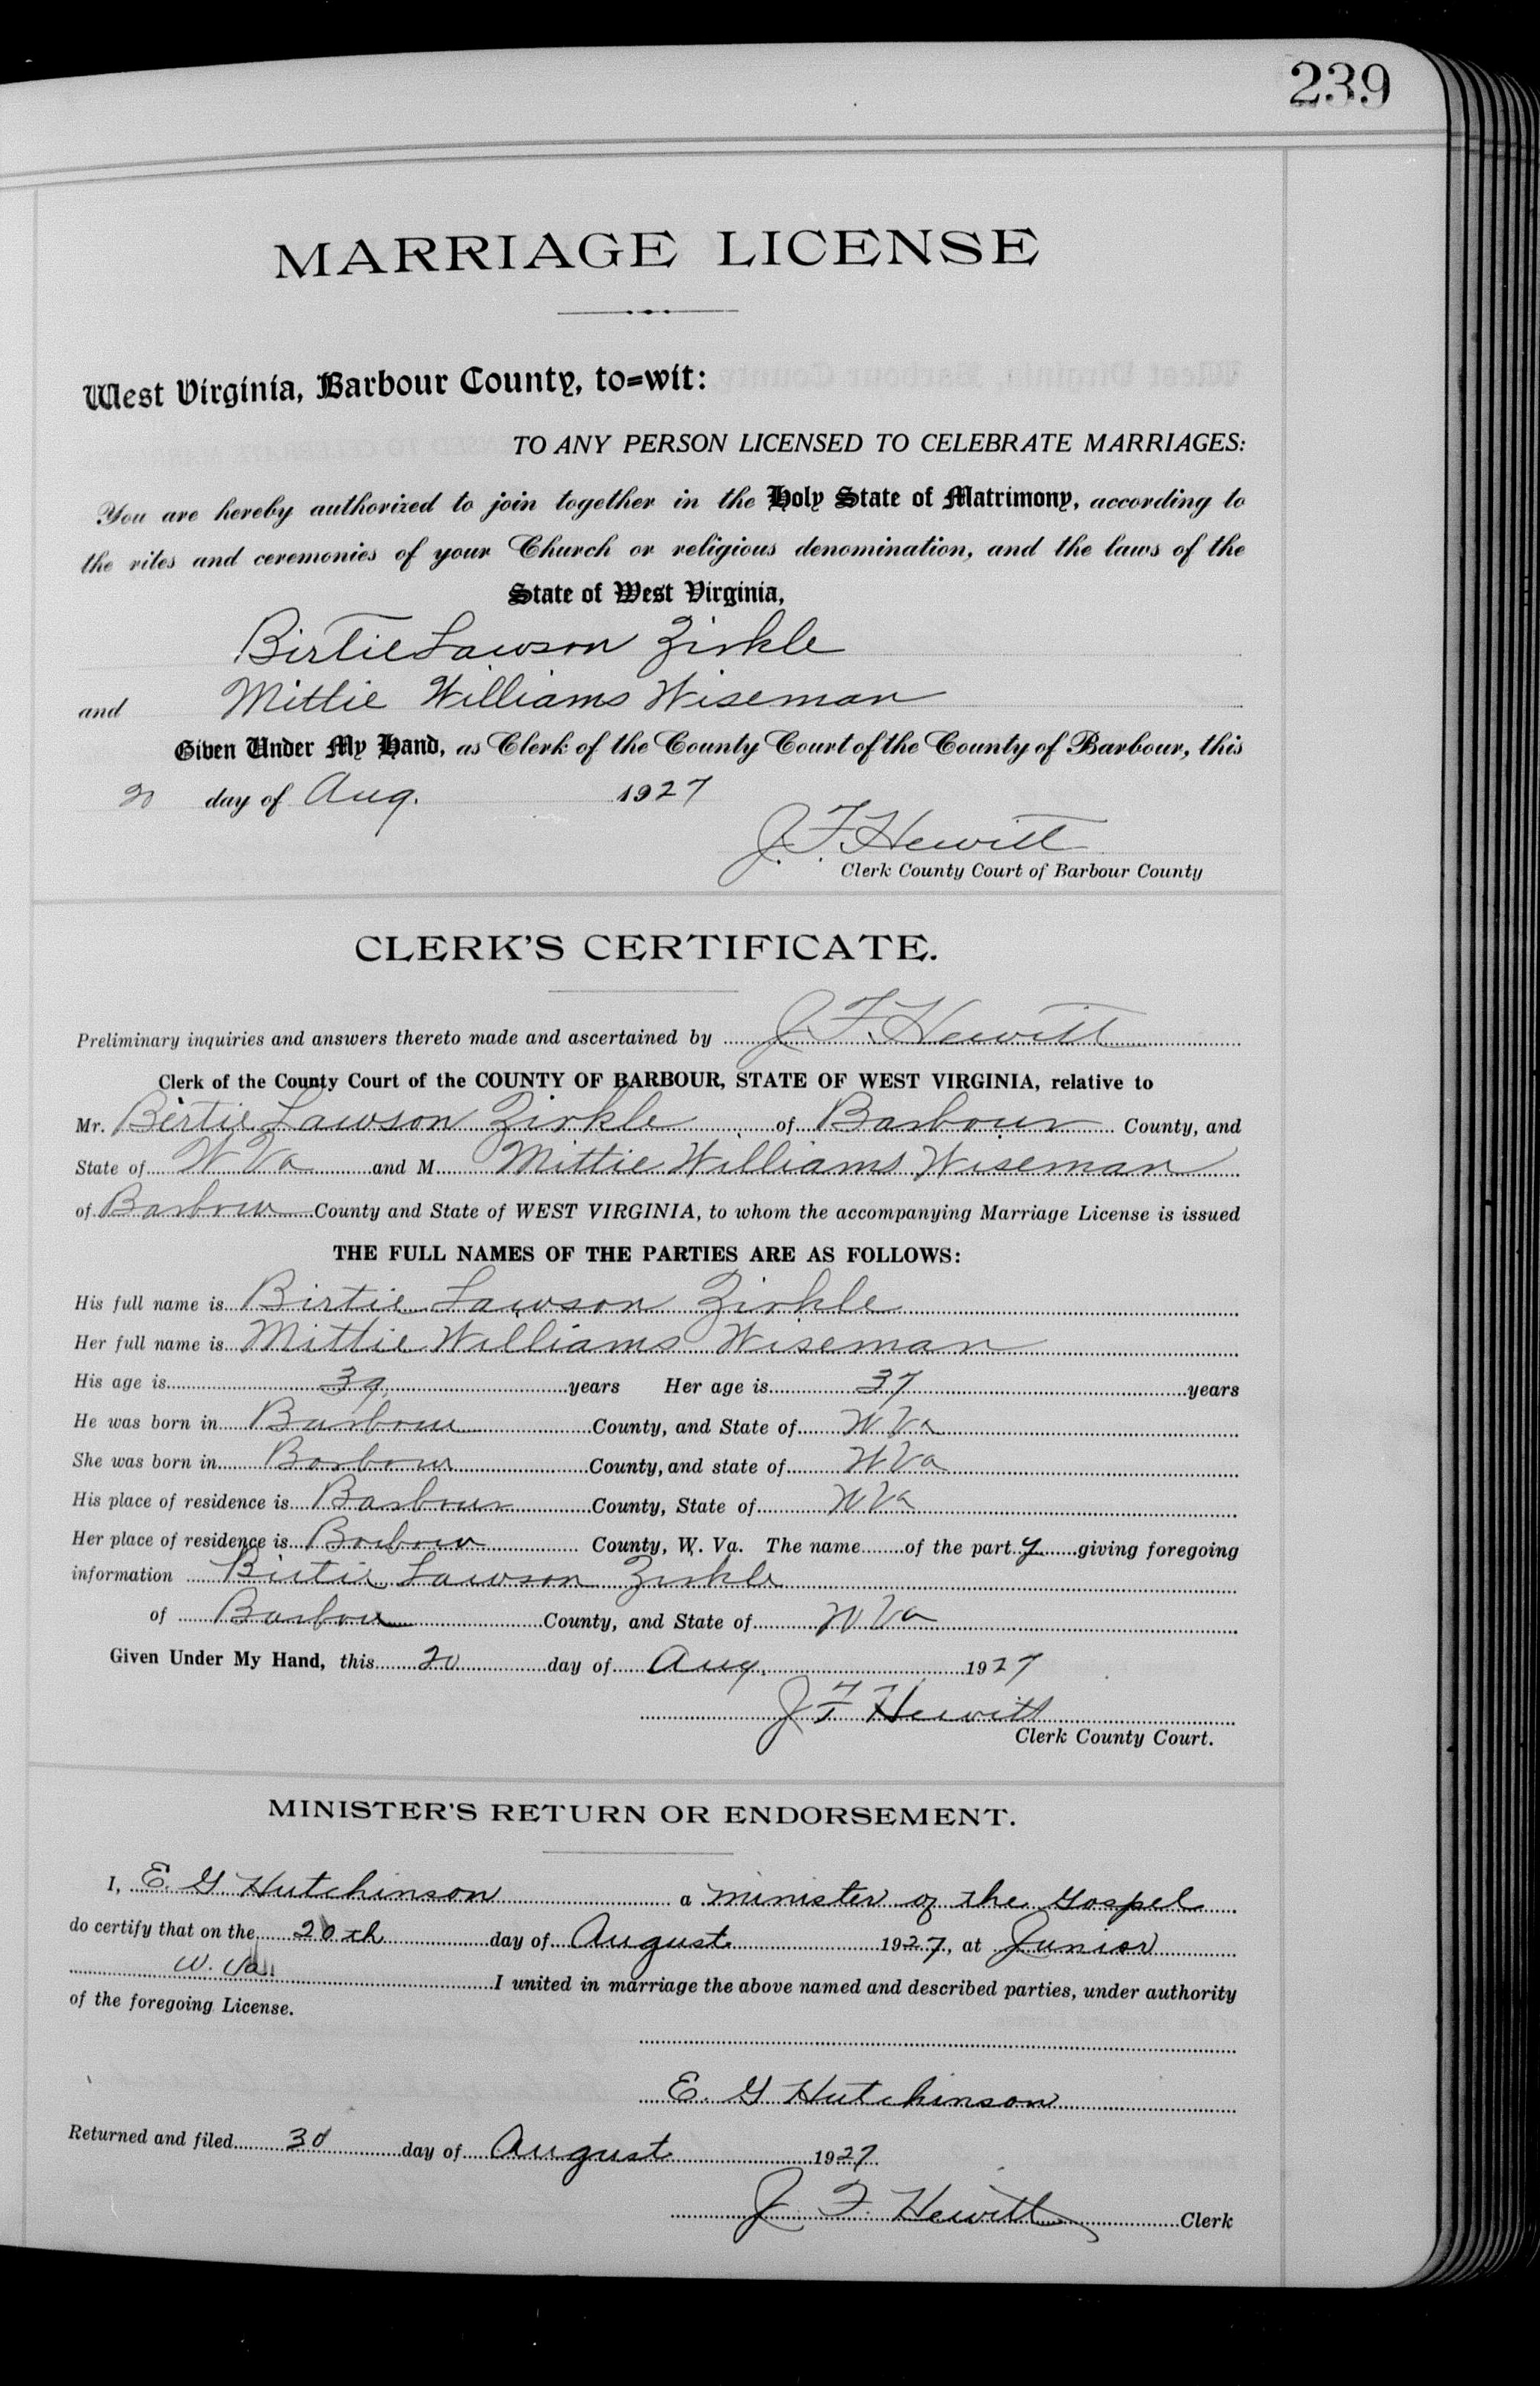 239
MARRIAGE LICENSE
West Virginia, Barbour County, to=wit:
TO ANY PERSON LICENSED TO CELEBRATE MARRIAGES:
You are hereby authorized to join together in the Holy State of Matrimony, according to
the rites and ceremonies of your Church or religious denomination, and the laws of the
State of West Virginia,
Birtie Lawson Zirkle
and Mittie Williams Wiseman
Given Under My Hand, as Clerk of the County Court of the County of Barbour, this
20 day of Aug. 1927
J. F. Hewitt
Clerk County Court of Barbour County
CLERK'S CERTIFICATE.
Preliminary inquiries and answers thereto made and ascertained by J. F. Hewitt
Clerk of the County Court of the COUNTY OF BARBOUR, STATE OF WEST VIRGINIA, relative to
Mr. Birtie Lawson Zirkle of Barbour County, and
State of W Va and M Mittie Williams Wiseman
of Barbour County and State of WEST VIRGINIA, to whom the accompanying Marriage License is issued
THE FULL NAMES OF THE PARTIES ARE AS FOLLOWS:
His full name is Birtie Lawson Zirkle
Her full name is Mittie Williams Wiseman
His age is 39 years Her age is 37 years
He was born in Barbour County, and State of W Va
She was born in Barbour County, and state of W Va
His place of residence is Barbour County, State of W Va
Her place of residence is Barbour County, W. Va. The name of the part y giving foregoing
information Birtie Lawson Zirkle
of Barbour County, and State of W Va
Given Under My Hand, this 20 day of Aug. 1927
J F Hewitt
Clerk County Court.
MINISTER'S RETURN OR ENDORSEMENT.
I, E. G Hutchinson a minister of the Gospel
do certify that on the 20th day of August 1927, at Junior
W. Va. I united in marriage the above named and described parties, under authority
of the foregoing License.
E. G Hutchinson
Returned and filed 30 day of August 1927
J. F. Hewitt Clerk